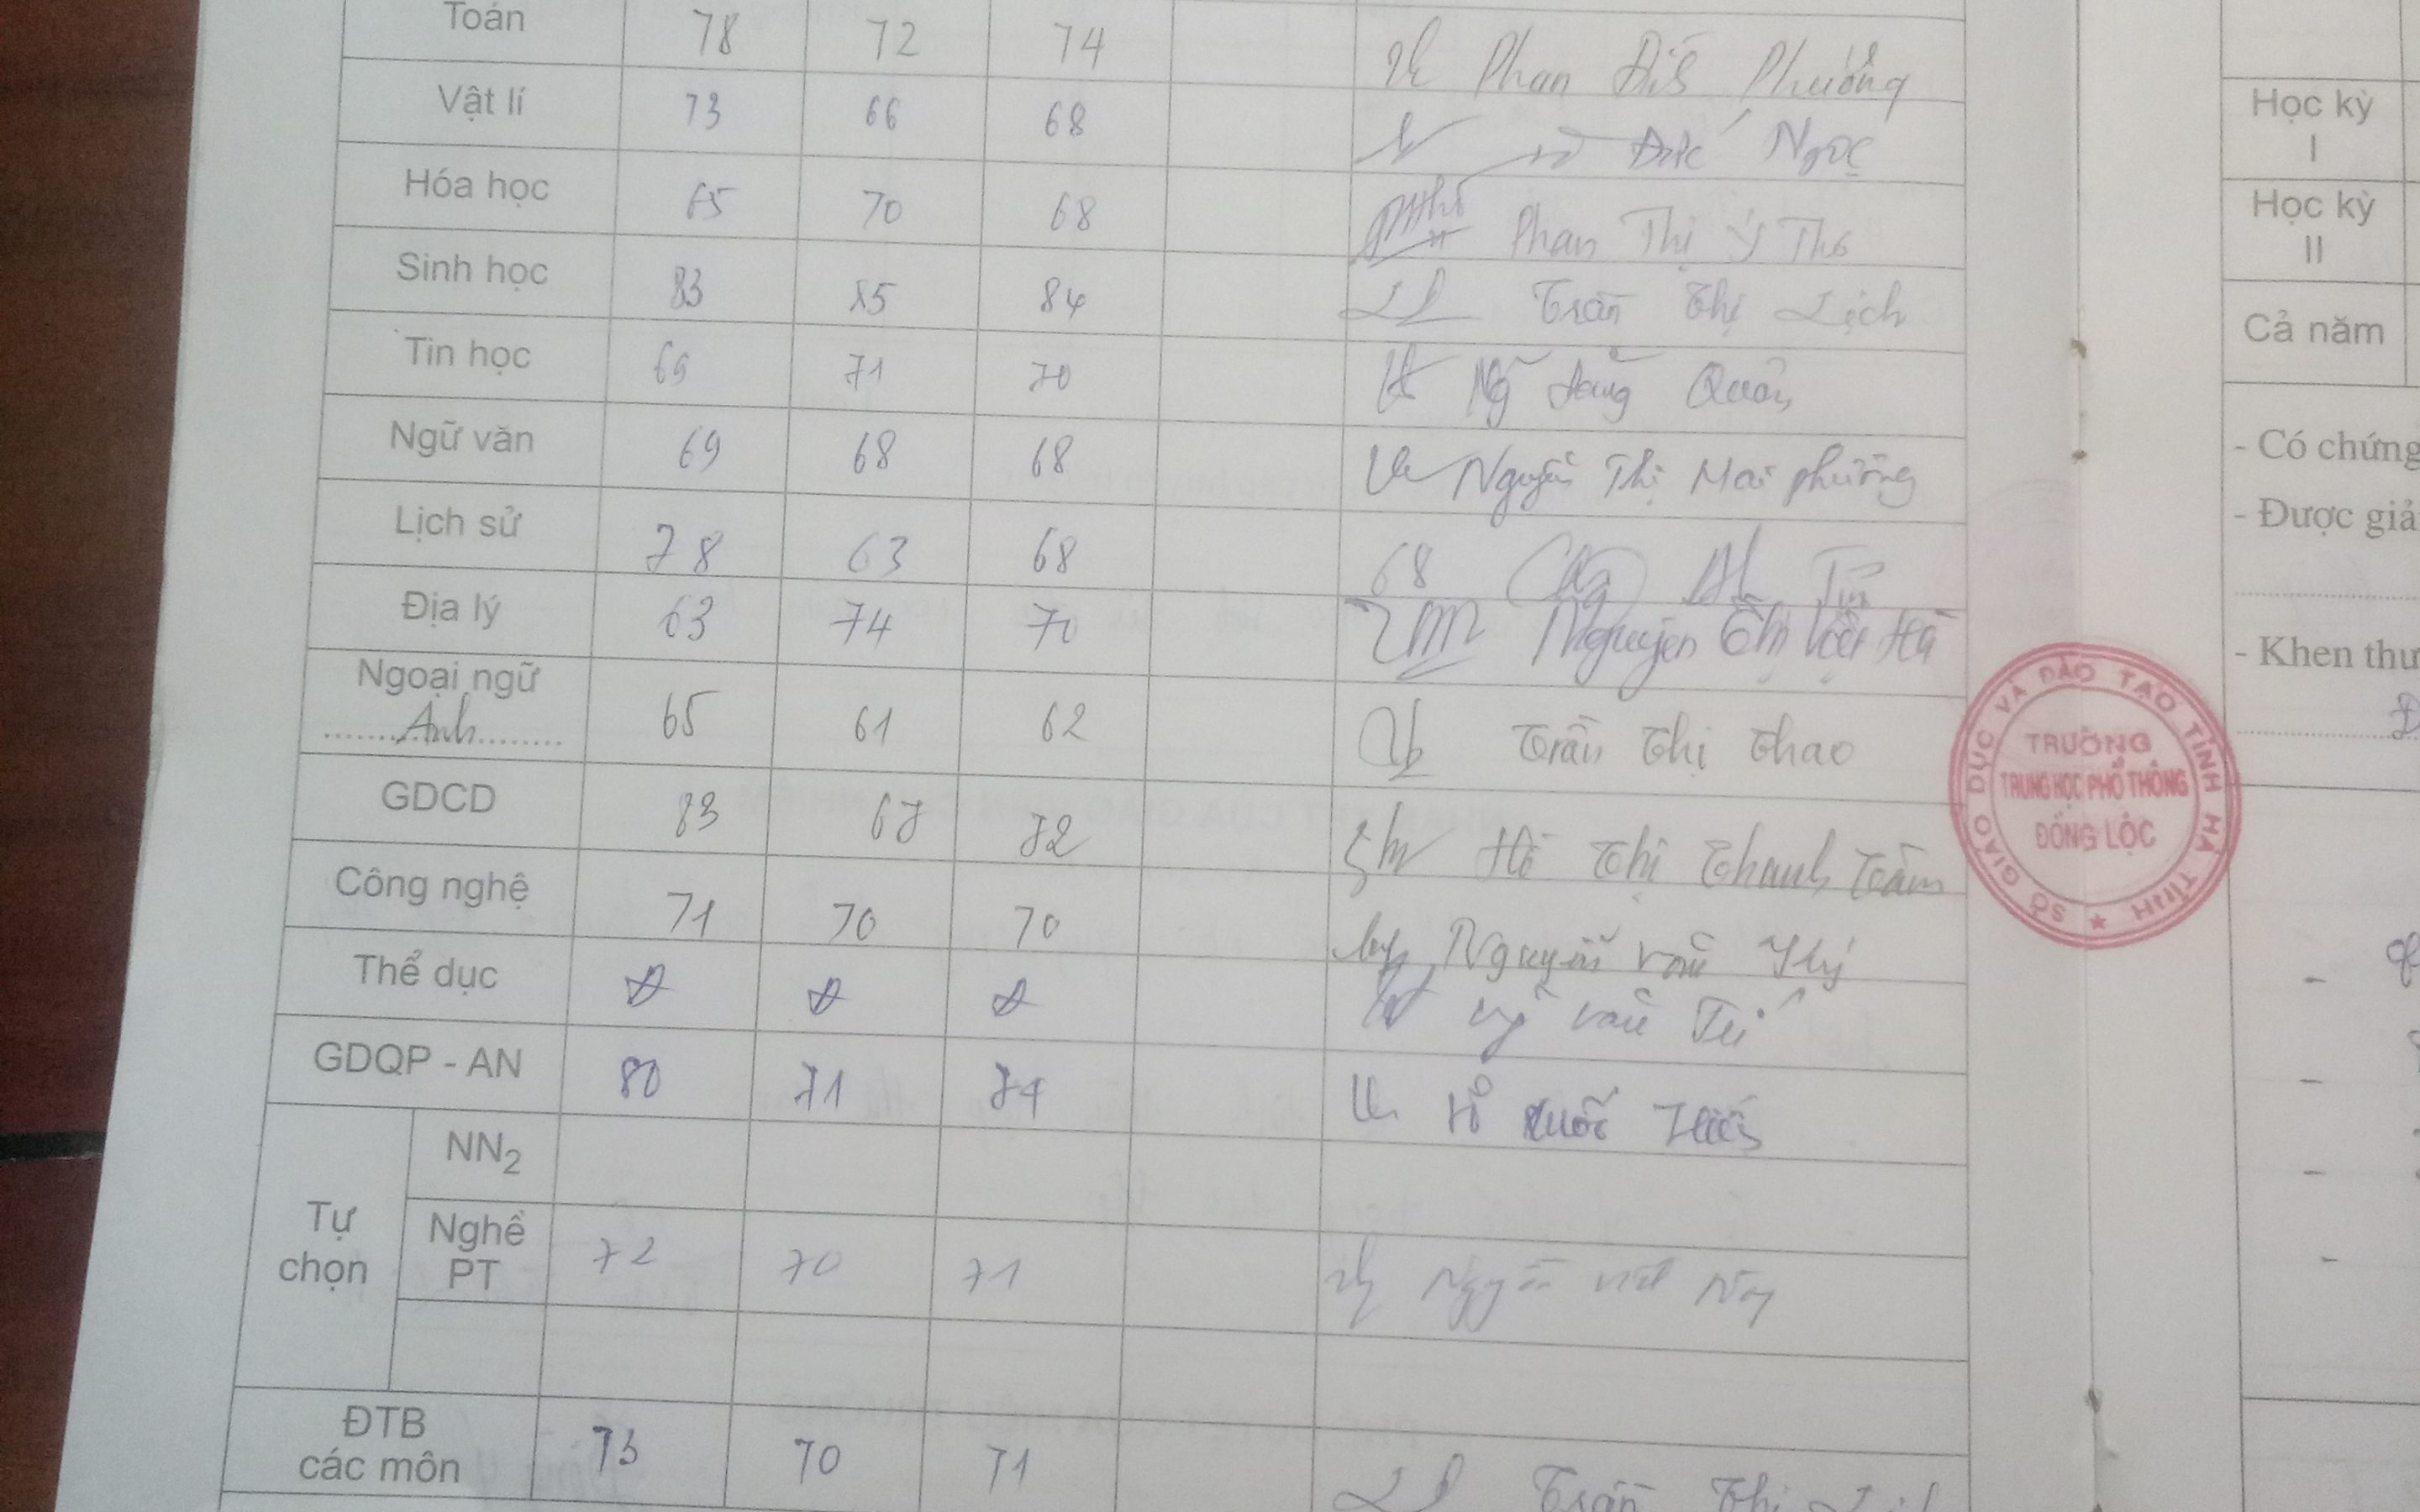 Toán 78 72 74 Phan Phương
Vật lí 73 66 68 Đức Ngọc
Hóa học 65 70 68 Phan Thị Ý Thơ
Sinh học 83 85 84 Trần Thị Lịch
Tin học 69 71 70 Quân
Ngữ văn 69 68 68 Nguyễn Thị Mai Phương
Lịch sử 78 63 68 68
Địa lý 63 74 70 Nguyễn Thị Hà
Ngoại ngữ
Anh 65 61 62 Trần Thị Thao
GDCD 83 67 72 Hồ Thị Thanh Trâm
Công nghệ 71 70 70 Nguyễn Văn
Thể dục Đ Đ Đ Văn Tú
GDQP - AN 80 71 74
Tự
chọn
NN2
Nghề
PT 72 70 71 Nguyễn
ĐTB
các môn 73 70 71 Trần Thị
SỞ GIÁO DỤC VÀ ĐÀO TẠO TỈNH HÀ TĨNH
TRƯỜNG
TRUNG HỌC PHỔ THÔNG
ĐỒNG LỘC
Học kỳ
I
Học kỳ
II
Cả năm
- Có chứng
- Được
- Khen